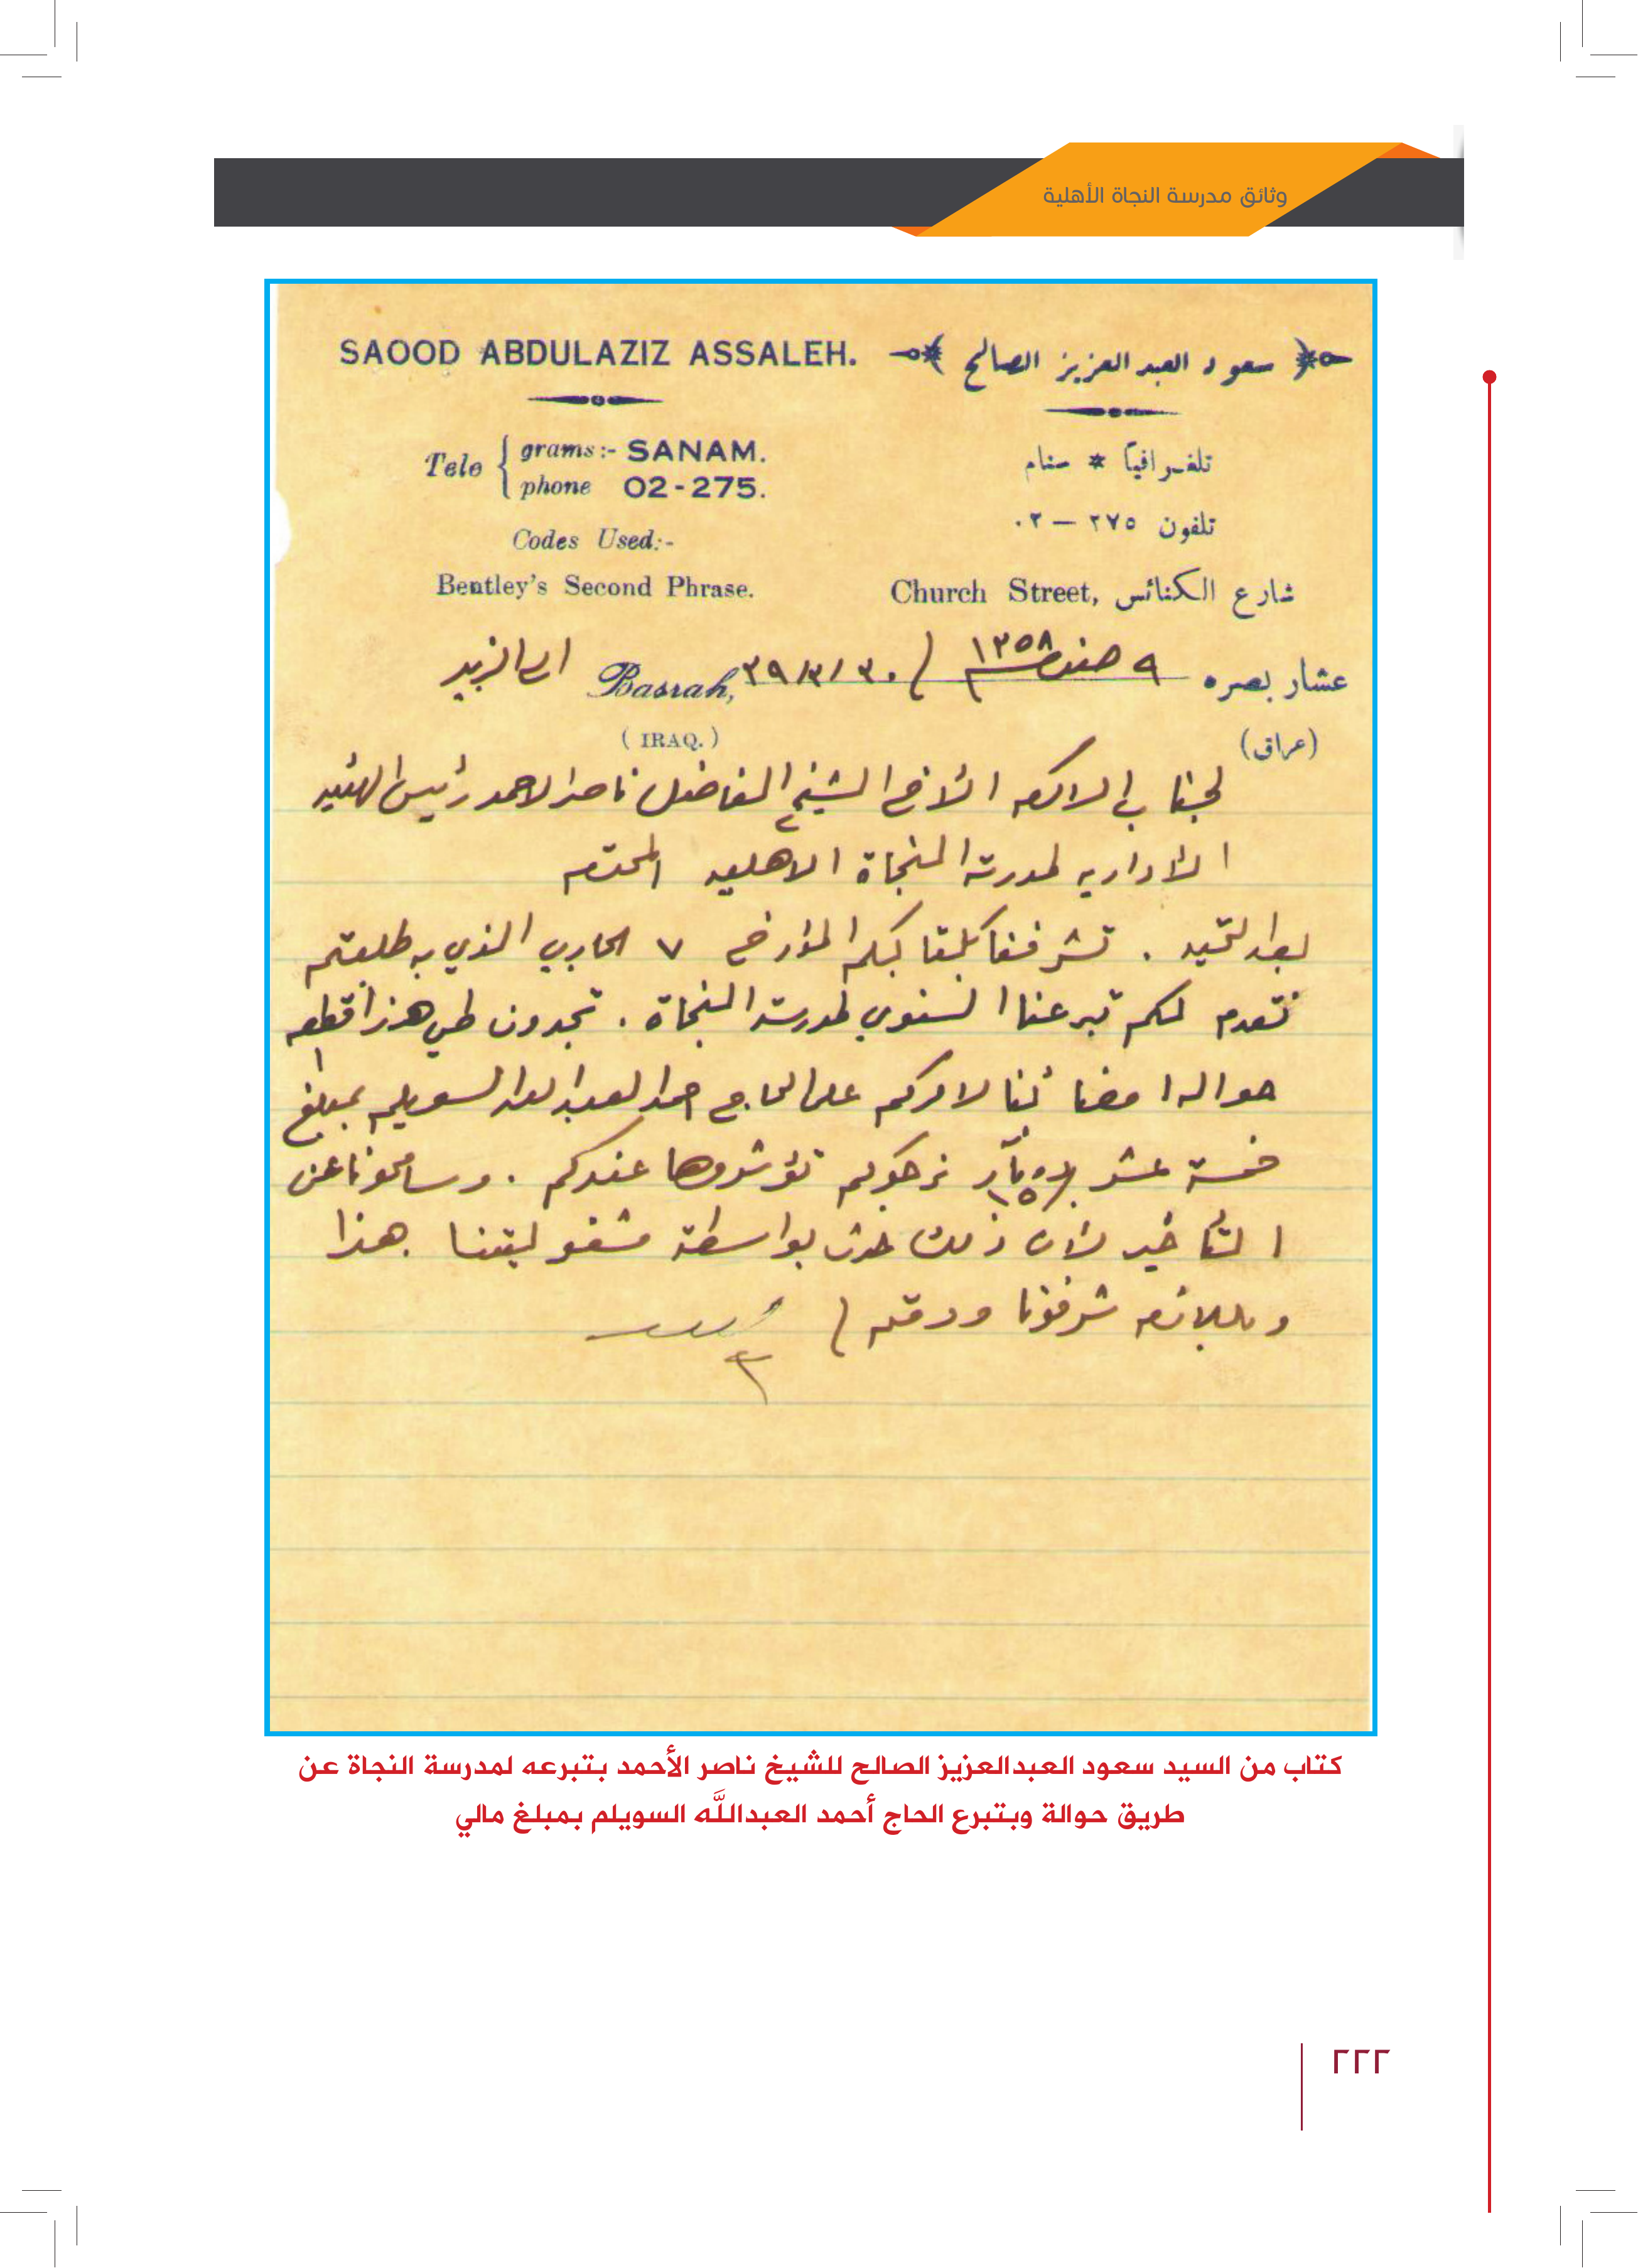 وثائق مدرسة النجاة الأهلية
SAOOD ABDULAZIZ ASSALEH.
سعود العبد العزيز الصالح
Tele { grams:- SANAM.
phone 02-275.
تلغرافياً * سنام
تلفون ٢٧٥ — ٠٢
Codes Used:-
Bentley's Second Phrase.
Church Street, شارع الكنائس
عشار بصره ٩ صفر ١٣٥٨ / ٣٠/٣/٣٩ Basrah, الى الزبير
(IRAQ.) (عراق)
لجناب الاكرم الأخ الشيخ الفاضل ناصر الاحمد رئيس الهئيه
الأداريه لمدرسة النجاة الاهليه المحترم
بعد التحيه . تشرفنا بكتابكم المؤرخ ٧ الجاري الذي به طلبتم
نقدم لكم تبرعنا السنوي لمدرسة النجاة . تجدون طي هذا قطعه
حواله امضائنا لامركم على الحاج احمد العبد الله السويلم بمبلغ
خمسة عشر دينار /١٥ نرجوكم تؤشروها عندكم . وسامحونا عن
التأخير لأن ذلك حدث بواسطة مشغوليتنا هذا
وباللازم شرفونا ودمتم /
كتاب من السيد سعود العبدالعزيز الصالح للشيخ ناصر الأحمد بتبرعه لمدرسة النجاة عن
طريق حوالة وبتبرع الحاج أحمد العبداللَّه السويلم بمبلغ مالي
٢٢٢